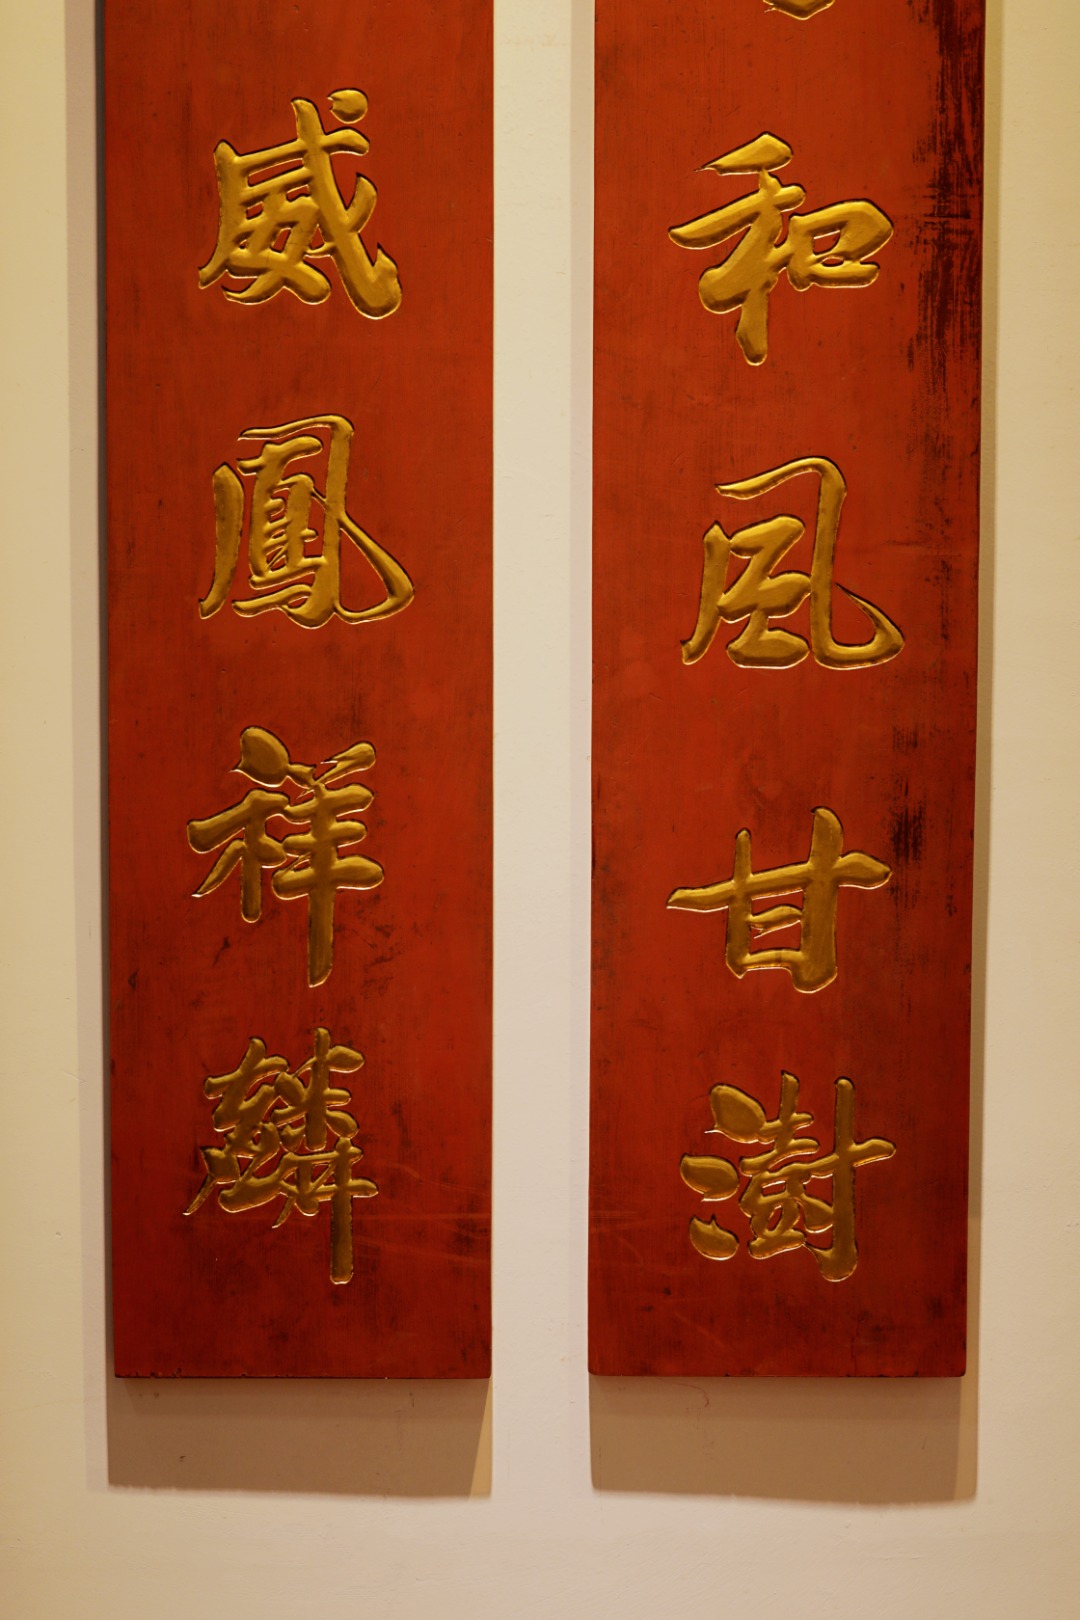 和風甘澍
威鳳祥麟